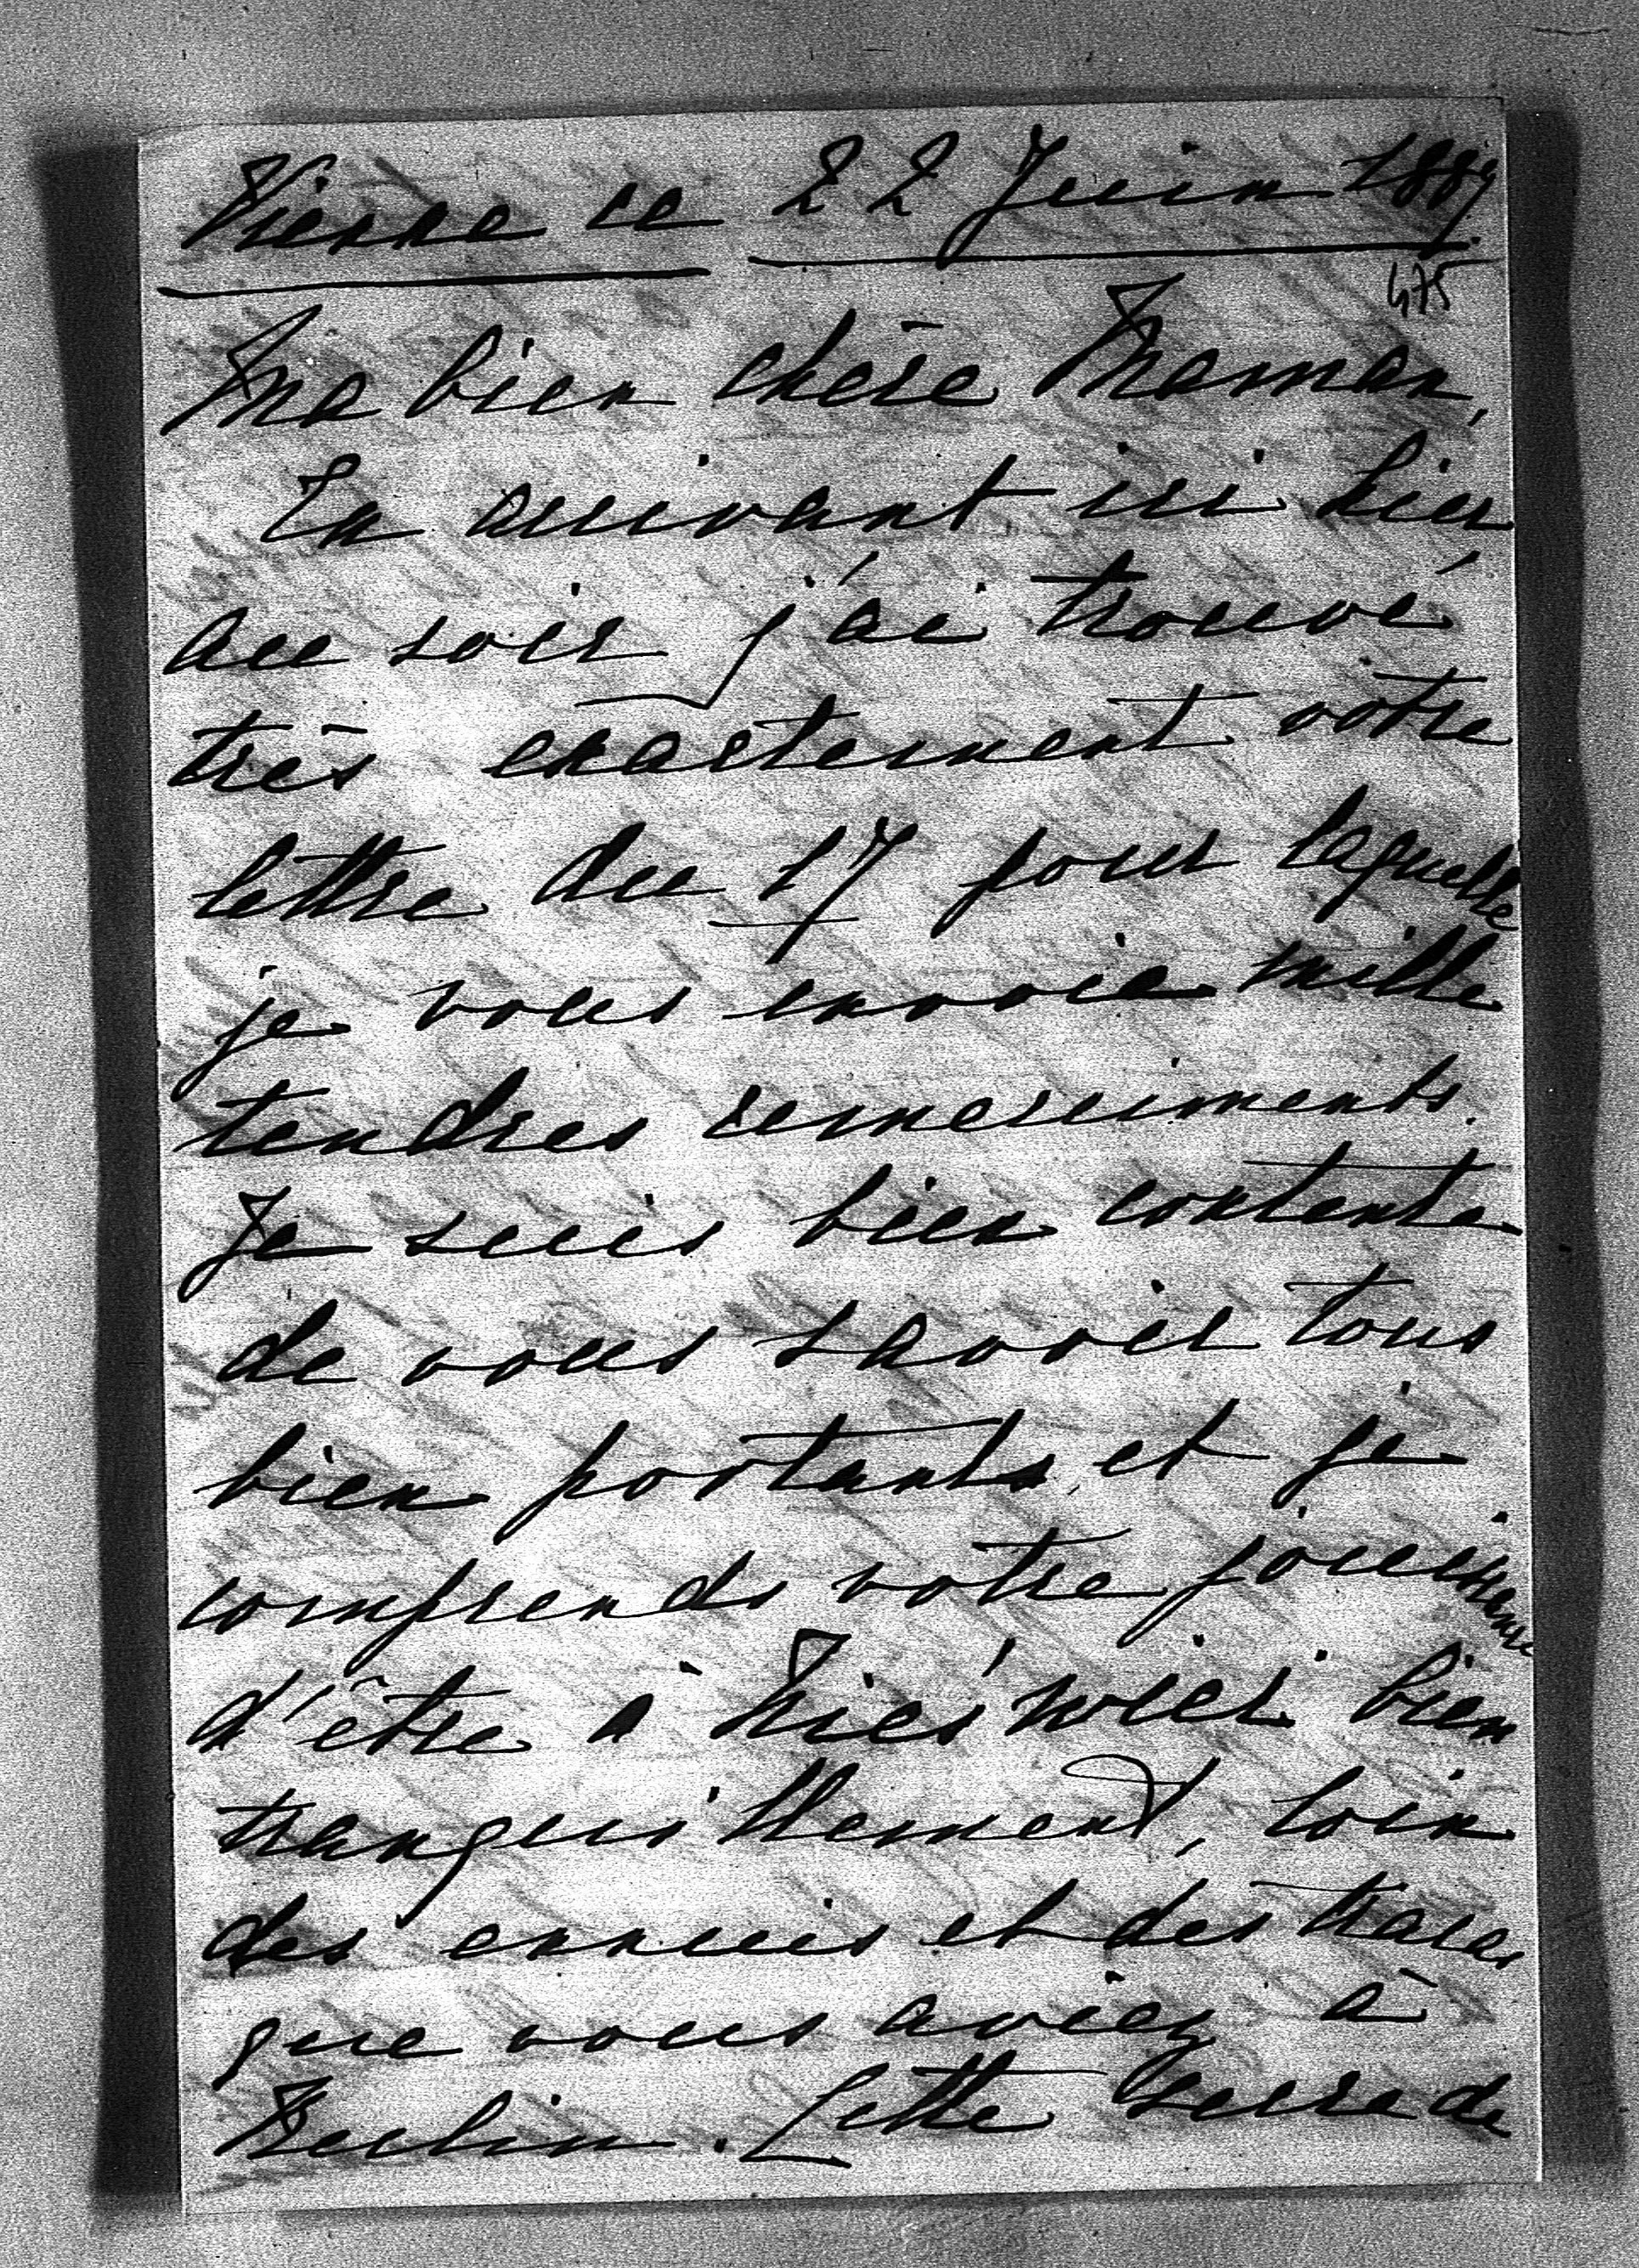 Vienne ce 22 Juin 1889
475
Ma bien chère Maman,
En arrivant ici hier
au soir j'ai trouvé
très exactement votre
lettre du 17 pour laquelle
je vous envoie mille
tendres remerciments.
Je suis bien contente
de vous savoir tous
bien portants, et je
comprends votre jouissance
d'être à Nieśwież bien
tranquillement, loin
des ennuis et des tracas
que vous aviez à
Berlin. Cette serre de